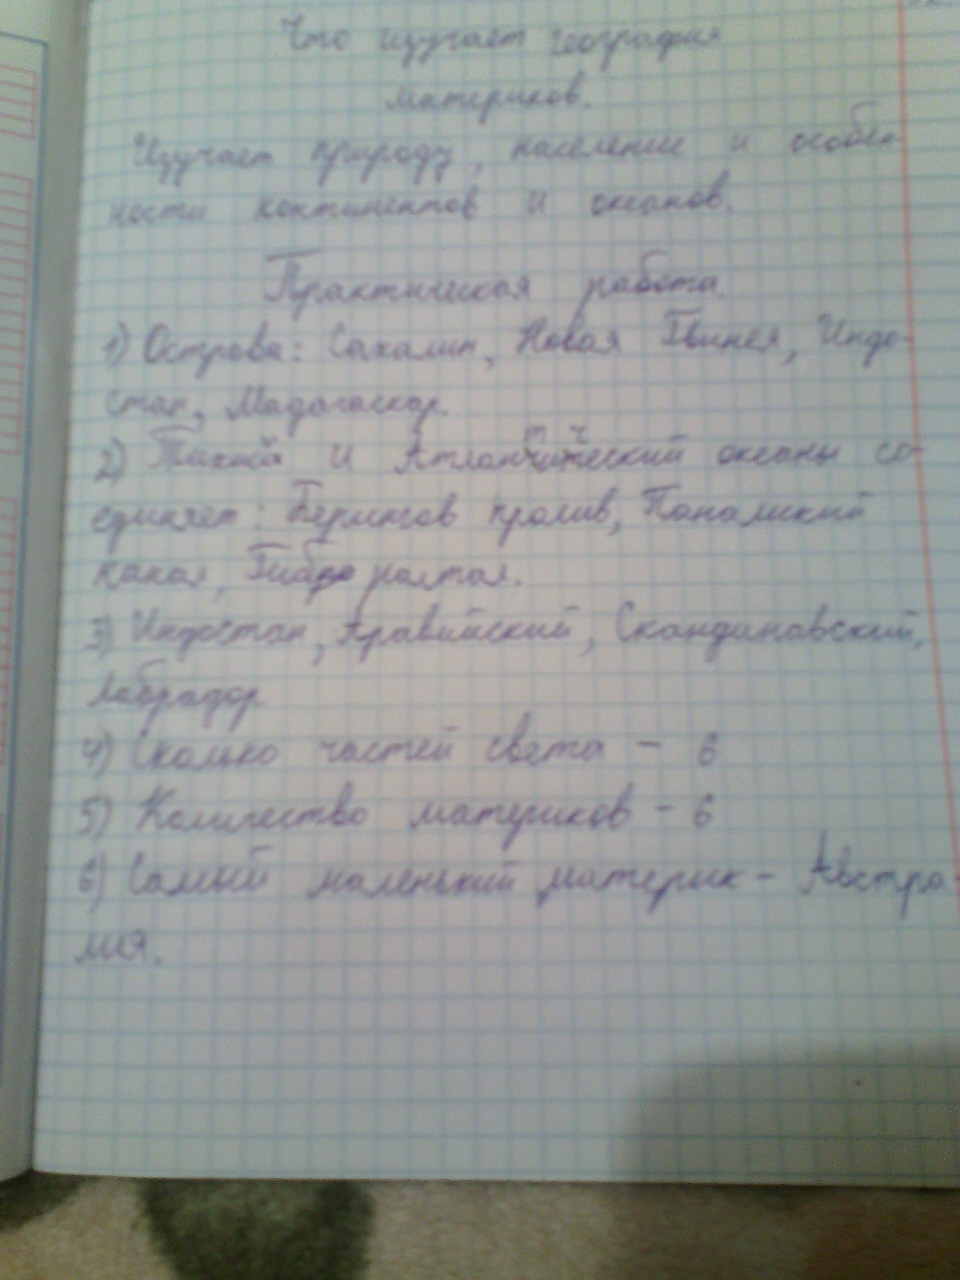 Что изучает география
материков.
Изучает природу, население и особен-
ности континентов и океанов.
Практическая работа
1) Острова: Сахалин, Новая Гвинея, Индо-
стан, Мадагаскар.
2) Тихий и Атлантический океаны со-
единяет: Берингов пролив, Панамский
канал, Гибралтал.
3) Индостан, Аравийский, Скандинавский,
Лабрадор
4) Сколько частей света - 6
5) Количество материков - 6
6) Самый маленький материк - Австра-
лия.